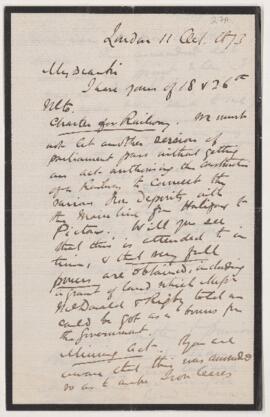 London 11 Oct. 1873
My dear Sir
I have yours of 18 & 26th
Ulto.
Charter for Railway. We must
not let another session of
parliament pass without getting
an act authorising the construction
of a Railway to connect the
various Iron Deposits with
the Main line from Halifax to
Pictou. Will you see
that this is attended to in
time, & that very full
powers are obtained, including
a grant of land which Messrs
McDonald & Rigby told us
could be got as a bonus from
the Government.
Mining Act. You are
aware that this was amended
so as to make Iron leases